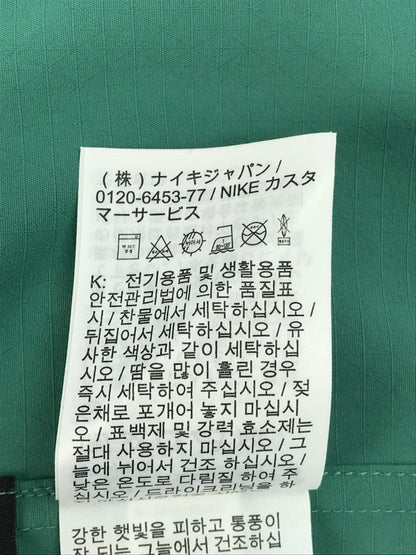 (株)ナイキジャパン/
0120-6453-77 / NIKE カスタ
マーサービス
K: 전기용품 및 생활용품
안전관리법에 의한 품질표
시 / 찬물에서 세탁하십시오 /
뒤집어서 세탁하십시오 / 유
사한 색상과 같이 세탁하십
시오 / 땀을 많이 흘린 경우
즉시 세탁하여 주십시오 / 젖
은채로 포개어 놓지 마십시
오 / 표백제 및 강력 효소제는
절대 사용하지 마십시오 / 그
늘에 뉘어서 건조 하십시오 /
낮은 온도로 다림질 하여 주
십시오 / 드라이크리닝을 하
강한 햇빛을 피하고 통풍이
잘 되는 그늘에서 건조하십